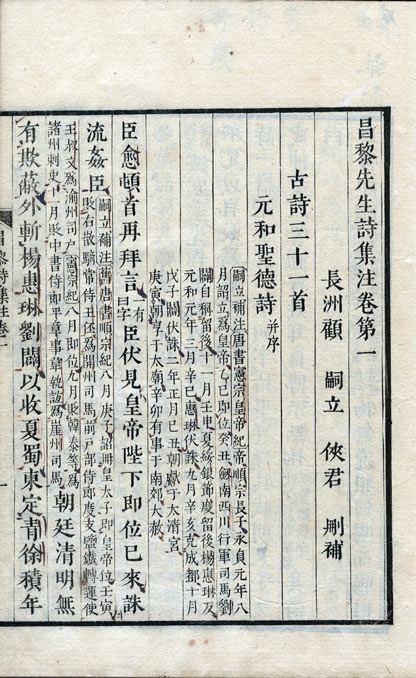 昌黎先生詩集注卷第一
長洲顧 嗣立 俠君 刪補
古詩三十一首
元和聖德詩 并序
嗣立補注唐書憲宗皇帝紀帝順宗長子永貞元年八
月詔立爲皇帝乙巳即位癸丑劒南西川行軍司馬劉
闢自稱留後十一月壬申夏綏銀節度留後楊惠琳反
元和元年三月辛巳惠琳伏誅九月辛亥克成都十月
戊子闢伏誅二年正月己丑朝獻于太清宮
庚寅朝享于太廟辛卯有事于南郊大赦
臣愈頓首再拜言一有曰字臣伏見皇帝陛下即位已來誅
流姦臣
嗣立補注舊唐書順宗紀八月庚子詔冊皇太子即皇帝位壬寅
貶右散騎常侍王伾爲開州司馬前戶部侍郎度支鹽鐵轉運使
王叔文爲渝州司戶憲宗紀八月即位九月貶韓泰等爲
諸州刺史十一月貶中書侍郎平章事韋執誼爲崖州司馬
朝廷清明無
有欺蔽外斬楊惠琳劉闢以收夏蜀東定青徐積年
昌黎詩集注卷一
一